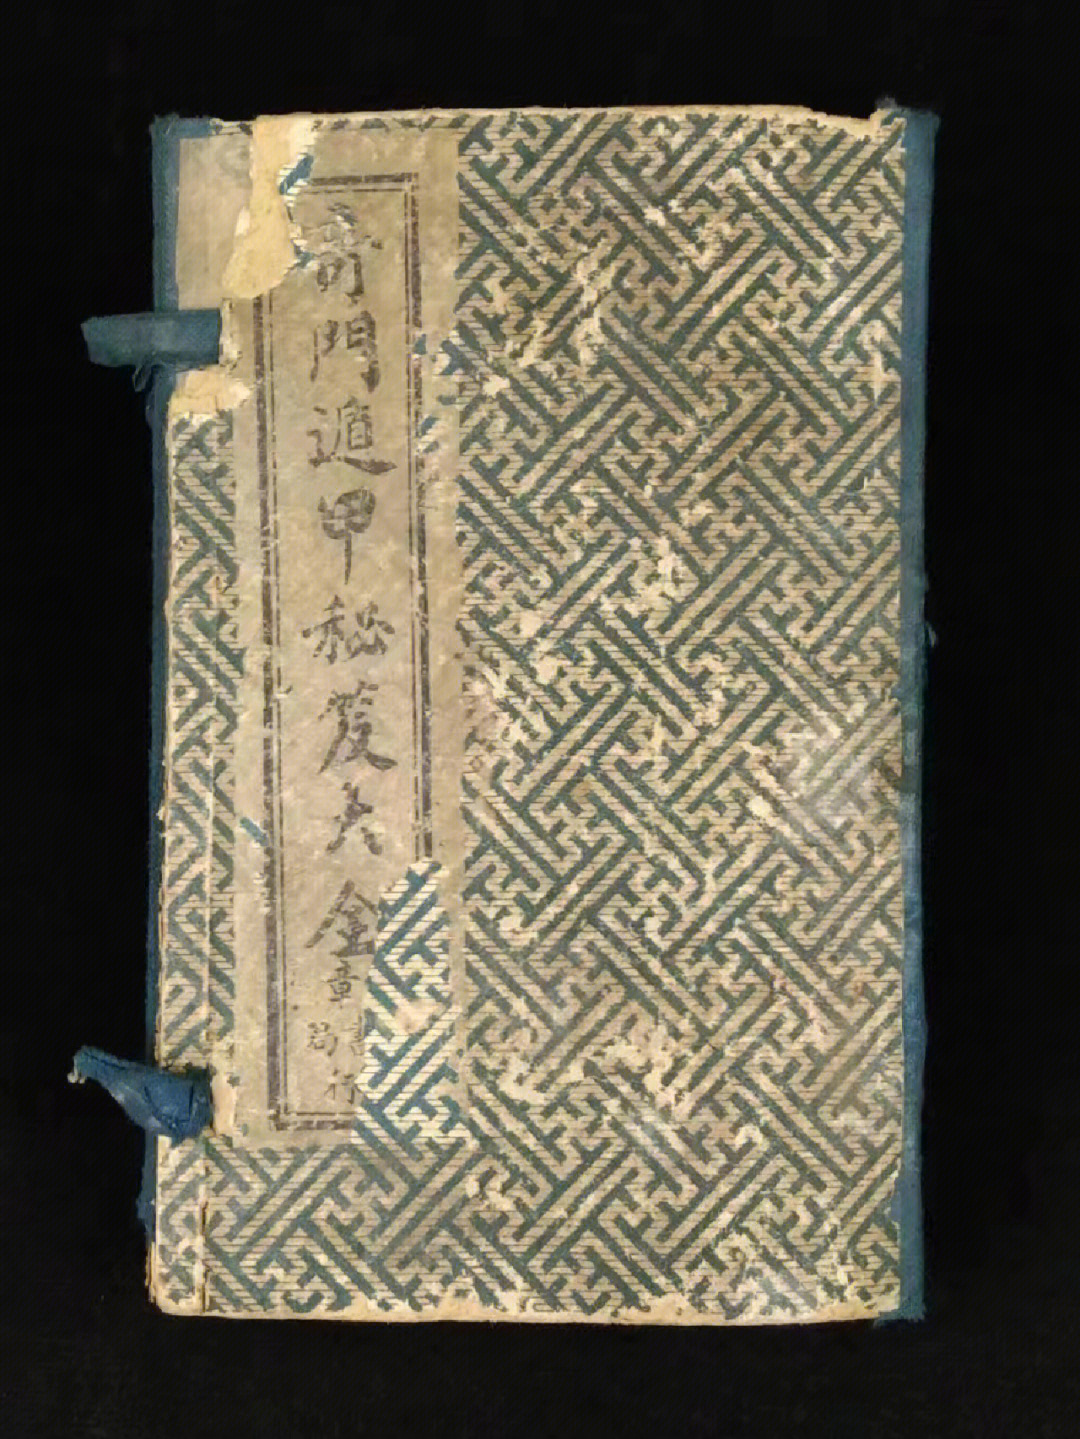 竒門遁甲秘笈大全
章書局行